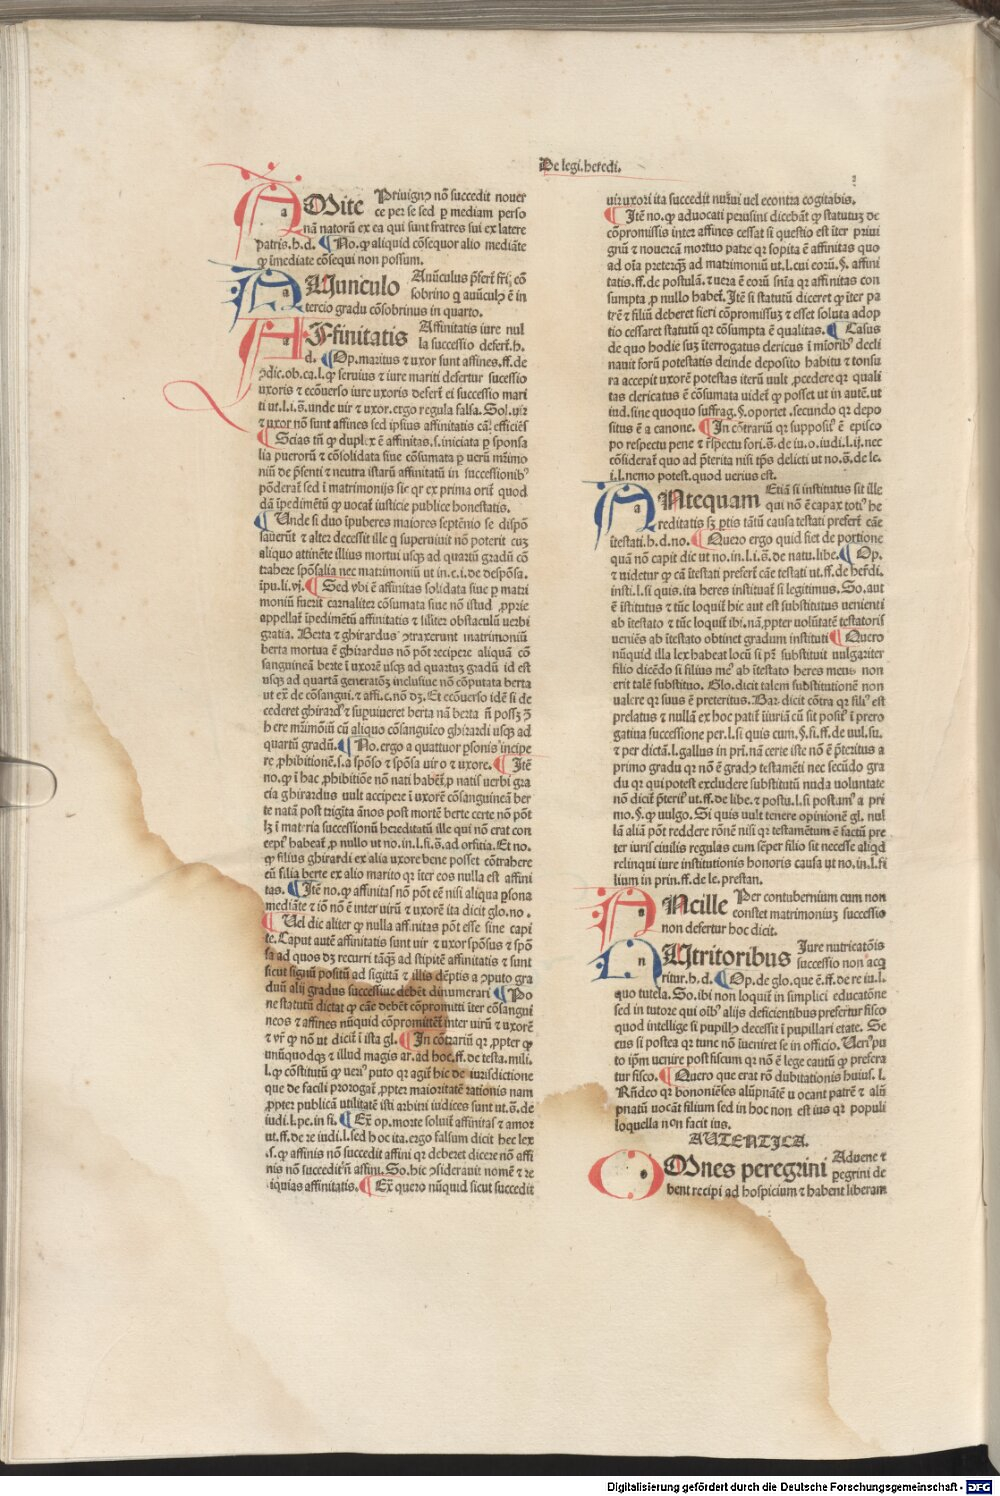 De legi. heredi.
AMite Priuignꝰ nõ succedit nouer
ce per se sed ꝑ mediam perso
nã natorũ ex ea qui sunt fratres sui ex latere
patris. h. d. ¶ No. ꝙ aliquid cõsequor alio mediãte
ꝙ ĩmediate cõsequi non possum.
AVunculo Auũculus p̃fert̃ fr̃i; cõ
sobrino q auũculꝰ ẽ in
tercio gradu cõsobrinus in quarto.
AFfinitatis Affinitatis iure nul
la successio defert̃. h.
d. ¶ Op. maritus ⁊ uxor sunt affines. ff. de
uxoris ⁊ ecõuerso iure uxoris defert̃ ei successio mari
ti ut. l. i. s̃. unde uir ⁊ uxor. ergo regula falsa. Sol. uir
⁊ uxor nõ sunt affines sed ipsius affinitatis cã. efficiẽs
¶ Scias tñ ꝙ duplex ẽ affinitas. s. iniciata ꝑ sponsa
lia puerorũ ⁊ cõsolidata siue cõsumata ꝑ uerũ mr̃imo
niũ de p̃senti ⁊ neutra istarũ affinitatũ in successionibꝰ
põderat̃ sed ĩ matrimonijs sic qr ex prima orit̃ quod
dã ĩpedimẽtũ ꝙ uocat̃ iusticie publice honestatis.
¶ Unde si duo ĩpuberes maiores septẽnio se dispõ
sauerũt ⁊ alter decessit ille q superuiuit nõ poterit cuꝫ
aliquo attinẽte illius mortui usqꝫ ad quartũ gradũ cõ
trahere spõsalia nec matrimoniũ ut in. c. i. de despõsa.
ĩpu. li. vj. ¶ Sed ubi ẽ affinitas solidata siue ꝑ matri
moniũ fuerit carnaliter cõsumata siue nõ istud ꝓprie
appellat̃ ĩpedimẽtũ affinitatis ⁊ sil̃iter obstaculũ uerbi
gratia. Berta ⁊ ghirardus ꝯtraxerunt matrimoniũ
berta mortua ẽ ghirardus nõ põt recipere aliquã cõ
sanguineã berte ĩ uxorẽ usqꝫ ad quartuꝫ gradũ id est
usqꝫ ad quartã generatõꝫ inclusiue nõ cõputata berta
ut ex̃ de cõsangui. ⁊ affi. c. nõ dꝫ. Et ecõuerso idẽ si de
cederet ghirardꝰ ⁊ suꝑuiueret berta nã berta ñ possꝫ ꝯ̃
here mr̃imõiũ cũ aliquo cõsanguĩeo ghirardi usqꝫ ad
quartũ gradũ. ¶ No. ergo a quattuor ꝑsonis ĩncipe
re ꝓhibitionẽ. s. a spõso ⁊ spõsa uiro ⁊ uxore. ¶ Itẽ
no. ꝙ ĩ hac ꝓhibitiõe nõ nati habẽt̃ ꝓ natis uerbi gra
cia ghirardus uult accipere ĩ uxorẽ cõsanguineã ber
te natã post trigĩta ãnos post mortẽ berte certe nõ põt
lꝫ ĩ materia successionũ hereditatũ ille qui nõ erat con
cept̃ habeat̃ ꝓ nullo ut no. in. l. fi. s̃. ad orfitia. Et no.
ꝙ filius ghirardi ex alia uxore bene posset cõtrahere
cũ filia berte ex alio marito qr ĩter eos nulla est affini
tas. ¶ Itẽ no. ꝙ affinitas nõ põt eẽ nisi aliqua ꝑsona
mediãte ⁊ iõ nõ ẽ inter uirũ ⁊ uxorẽ ita dicit glo. no.
¶ Uel dic aliter ꝙ nulla affinitas põt esse sine capi
te. Caput autẽ affinitatis sunt uir ⁊ uxor spõsus ⁊ spõ
sa ad quos dꝫ recurri tãqꝫ ad stipitẽ affinitatis ⁊ sunt
sicut signũ positũ ad sigittã ⁊ illis dẽptis a ꝯputo gra
duũ alij gradus successiue debẽt dinumerari ¶ Po
ne statutũ dictat ꝙ cãe debẽt cõpromitti ĩter cõsangui
neos ⁊ affines nũquid cõpromittet̃ inter uirũ ⁊ uxorẽ
⁊ vr̃ ꝙ nõ ut dicit̃ ĩ ista gl. ¶ In cõtrariũ qr ꝓpter ꝙ
unũquodqꝫ ⁊ illud magis ar. ad hoc. ff. de testa. mili.
l. ꝙ cõstitutũ ꝙ uerꝰ puto qr agit̃ hic de iurisdictione
que de facili prorogat̃ ꝓpter maioritatẽ rationis nam
ꝓpter publicã utilitatẽ isti arbitri iudices sunt ut. s̃. de
iudi. l. pe. in fi. ¶ Ex̃ op. morte soluit̃ affinitas ⁊ amor
ut. ff. de re iudi. l. sed hoc ita. ergo falsum dicit hec lex
. s. ꝙ affinis nõ succedit affini qr deberet dicere nõ affi
nis nõ succedit ñ affini. So. hic ꝯsiderauit nomẽ ⁊ re
liquias affinitatis. ¶ Ex̃ quero nũquid sicut succedit
uir uxori ita succedit nurui uel econtra cogitabis.
¶ Itẽ no. ꝙ aduocati perusini dicebãt ꝙ statutuꝫ de
cõpromissis inter affines cessat si questio est ĩter priui
gnũ ⁊ nouercã mortuo patre qr sopita ẽ affinitas quo
ad oĩa preterqꝫ ad matrimoniũ ut. l. cui eorũ. §. affini
tatis. ff. de postulã. ⁊ uera ẽ eorũ snĩa qr affinitas con
sumpta ꝓ nullo habet̃. Itẽ si statutũ diceret ꝙ ĩter pa
trẽ ⁊ filiũ deberet fieri cõpromissuꝫ ⁊ esset soluta adop
tio cessaret statutũ qr cõsumpta ẽ qualitas. ¶ Casus
de quo hodie suꝫ ĩterrogatus clericus ĩ mĩoribꝰ decli
nauit forũ potestatis deinde deposito habitu ⁊ tonsu
ra accepit uxorẽ potestas iterũ uult ꝓcedere qr quali
tas clericatus ẽ cõsumata uidet̃ ꝙ posset ut in autẽ. ut
iud. sine quoquo suffrag. §. oportet. secundo qr depo
situs ẽ a canone. ¶ In cõtrariũ qr supposit̃ ẽ episco
po respectu pene ⁊ r̃spectu fori. s̃. de iu. o. iudi. l. ij. nec
cõsiderat̃ quo ad p̃terita nisi tp̃s delicti ut no. s̃. de le.
i. l. nemo potest. quod uerius est.
ANtequam Etiã si institutus sit ille
qui nõ ẽ capax totiꝰ he
reditatis sꝫ ꝑtis tãtũ causa testati prefert̃ cãe
ĩtestati. h. d. no. ¶ Quero ergo quid fiet de portione
quã nõ capit dic ut no. in. l. i. s̃. de natu. libe. ¶ Op.
⁊ uidetur ꝙ cã ĩtestati prefert̃ cãe testati ut. ff. de her̃di.
insti. l. si quis. ita heres instituat̃ si legitimus. So. aut
ẽ ĩstitutus ⁊ tũc loquit̃ hic aut est substitutus uenienti
ab ĩtestato ⁊ tũc loquit̃ ibi. nã ꝓpter uolũtatẽ testatoris
ueniẽs ab ĩtestato obtinet gradum instituti ¶ Quero
nũquid illa lex habeat locũ si pr̃ substituit uulgariter
filio dicẽdo si filius meꝰ ab ĩtestato heres meus non
erit talẽ substituo. Glo. dicit talem substitutionẽ non
ualere qr suus ẽ preteritus. Bar. dicit cõtra qr filiꝰ est
prelatus ⁊ nullã ex hoc patit̃ ĩiuriã cũ sit positꝰ ĩ prero
gatiua successione per. l. si quis cum. §. fi. ff. de uul. su.
⁊ per dictã. l. gallus in prĩ. nã certe iste nõ ẽ p̃teritus a
primo gradu qr nõ ẽ gradꝰ testamẽti nec secũdo gra
du qr qui potest excludere substitutũ nuda uoluntate
nõ dicit̃ p̃terit̃ ut. ff. de libe. ⁊ postu. l. si postumꝰ a pri
mo. §. ꝙ uulgo. Si quis uult tenere opinionẽ gl. nul
lã aliã põt reddere rõnẽ nisi qr testamẽtum ẽ factũ pre
ter iuris ciuilis regulas cum sẽper filio sit necesse aliqd
relinqui iure institutionis honoris causa ut no. in. l. fi
lium in prin. ff. de le. prestan.
ANcille Per contubernium cum non
constet matrimoniuꝫ successio
non defertur hoc dicit.
NVtritoribus Iure nutricatõis
successio non acq
ritur. h. d. ¶ Op. de glo. que ẽ. ff. de re iu. l.
quo tutela. So. ibi non loquit̃ in simplici educatõne
sed in tutore qui oĩbꝰ alijs deficientibus prefertur fisco
quod intellige si pupillꝰ decessit ĩ pupillari etate. Se
cus si postea qr tunc nõ ĩueniret se in officio. Uerꝰ pu
to ip̃m uenire post fiscum qr nõ ẽ lege cautũ ꝙ prefera
tur fisco. ¶ Quero que erat rõ dubitationis huius. l.
Rñdeo qr bononiẽses alũpnãtẽ uocant patrẽ ⁊ alũ
pnatũ uocãt filium sed in hoc non est ius qr populi
loquella non facit ius.
AUTENTICA.
OMnes peregrini Aduene ⁊
ꝑegrini de
bent recipi ad hospicium ⁊ habent liberam
Digitalisierung gefördert durch die Deutsche Forschungsgemeinschaft - DFG